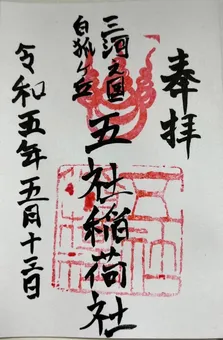 奉拝
三河之国
白狐ヶ丘
五社稲荷社
令和五年五月十三日